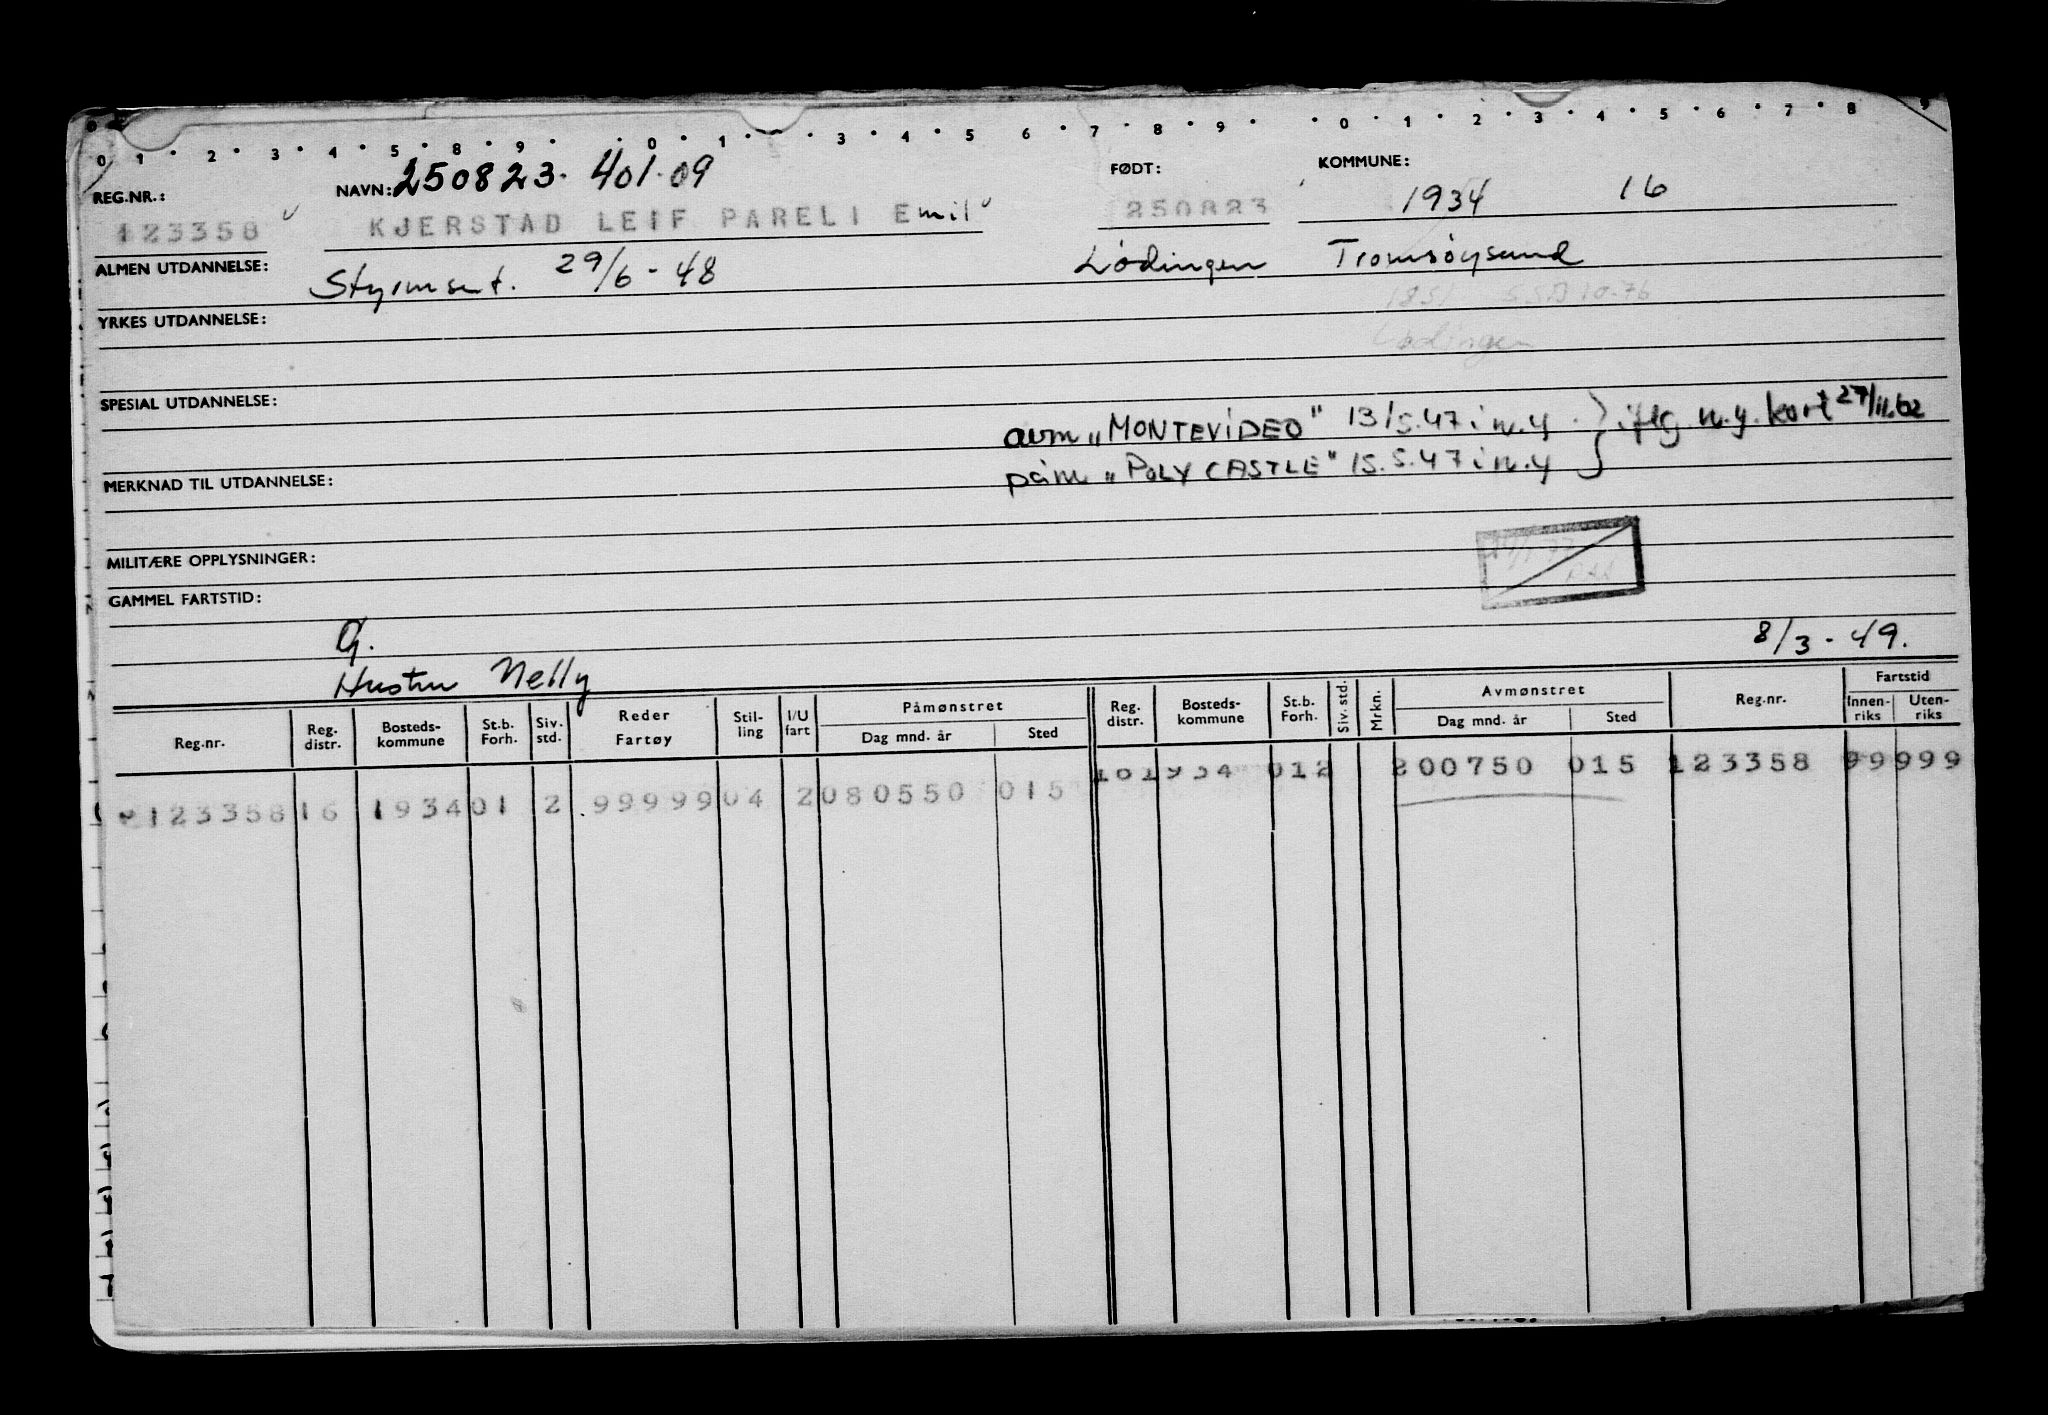 0 1 2 3 4 5 8 9 0 1 2 3 4 5 6 7 8 9 0 1 2 3 4 5 6 7 8 9
REG.NR.: NAVN: 250823. 401.09 FØDT: KOMMUNE:
123358 KJERSTAD LEIF PARELI Emil 250823 1934 16
ALMEN UTDANNELSE: Styrmsert. 29/6-48 Lødingen Tromsøysund
1851 10-76
YRKES UTDANNELSE:
Lødingen
SPESIAL UTDANNELSE:
avm „MONTEVIDEO" 13/5.47 i n.y. iflg. n.y. kort 27/11.62
påm „POLYCASTLE" 15.5.47 i n.y
MERKNAD TIL UTDANNELSE:
MILITÆRE OPPLYSNINGER:
GAMMEL FARTSTID:
G. 8/3-49.
Hustru Nelly
Reg.nr. Reg. distr. Bosteds-kommune St.b. Forh. Siv. std. Reder Fartøy Stil-ling I/U fart Påmønstret Dag mnd. år Sted Reg. distr. Bosteds-kommune St.b. Forh. Siv. std. Mrkn. Avmønstret Dag mnd. år Sted Reg.nr. Fartstid Innen-riks Uten-riks
161934 012 200750 015 123358 99999
123358 16 1934 01 2 99999 04 2 080550 015